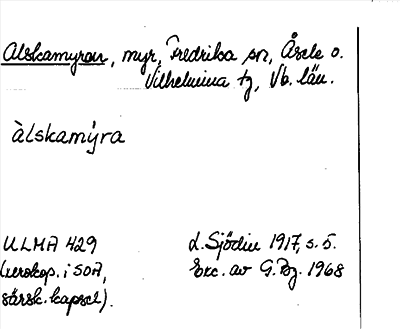 Alskamyran, myr, Fredrika sn, Åsele o.
Vilhelmina tg, Vb. län.
àlskamýra
ULMA 429
(xerokop. i SOA,
särsk. kapsel).
L. Sjödin 1917, s. 5.
Exc. av G. Bg. 1968